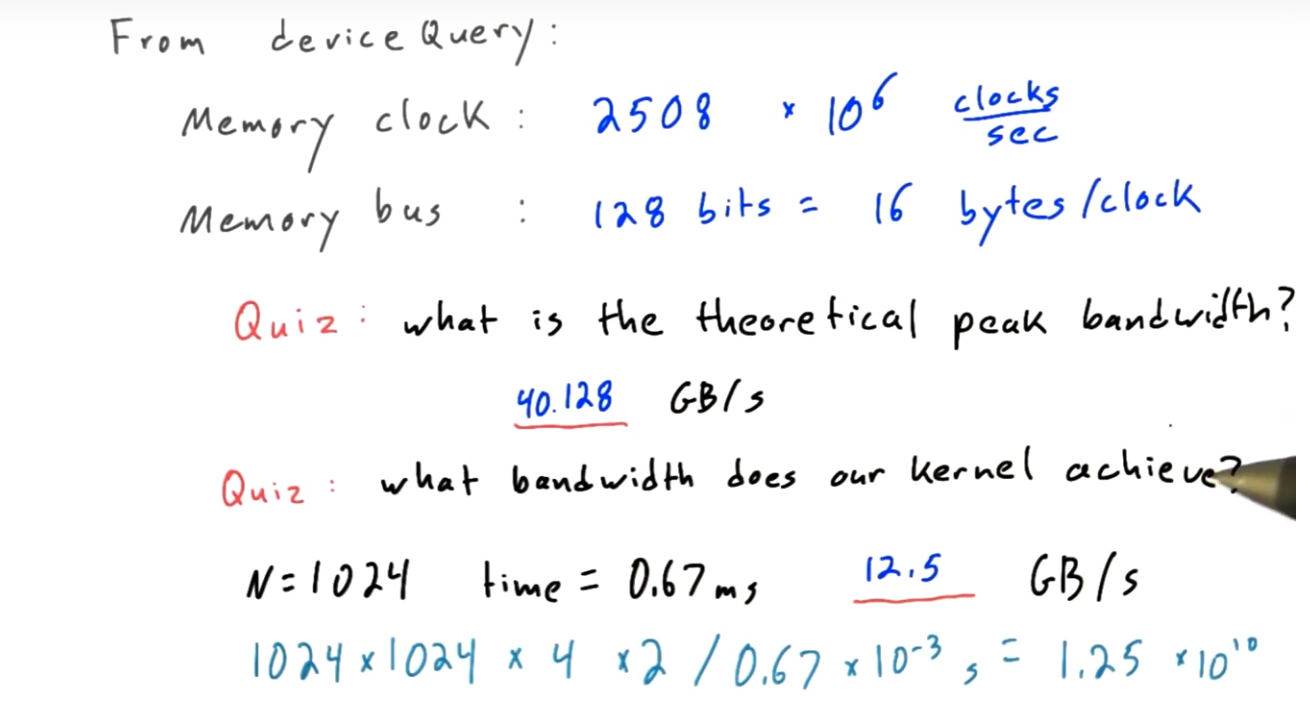 From deviceQuery:
Memory clock: 2508 * 10^6 clocks/sec
Memory bus : 128 bits = 16 bytes/clock
Quiz: what is the theoretical peak bandwidth?
40.128 GB/s
Quiz: what bandwidth does our kernel achieve?
N=1024 time = 0.67ms 12.5 GB/s
1024 × 1024 × 4 × 2 / 0.67 × 10^-3 s = 1.25 * 10^10